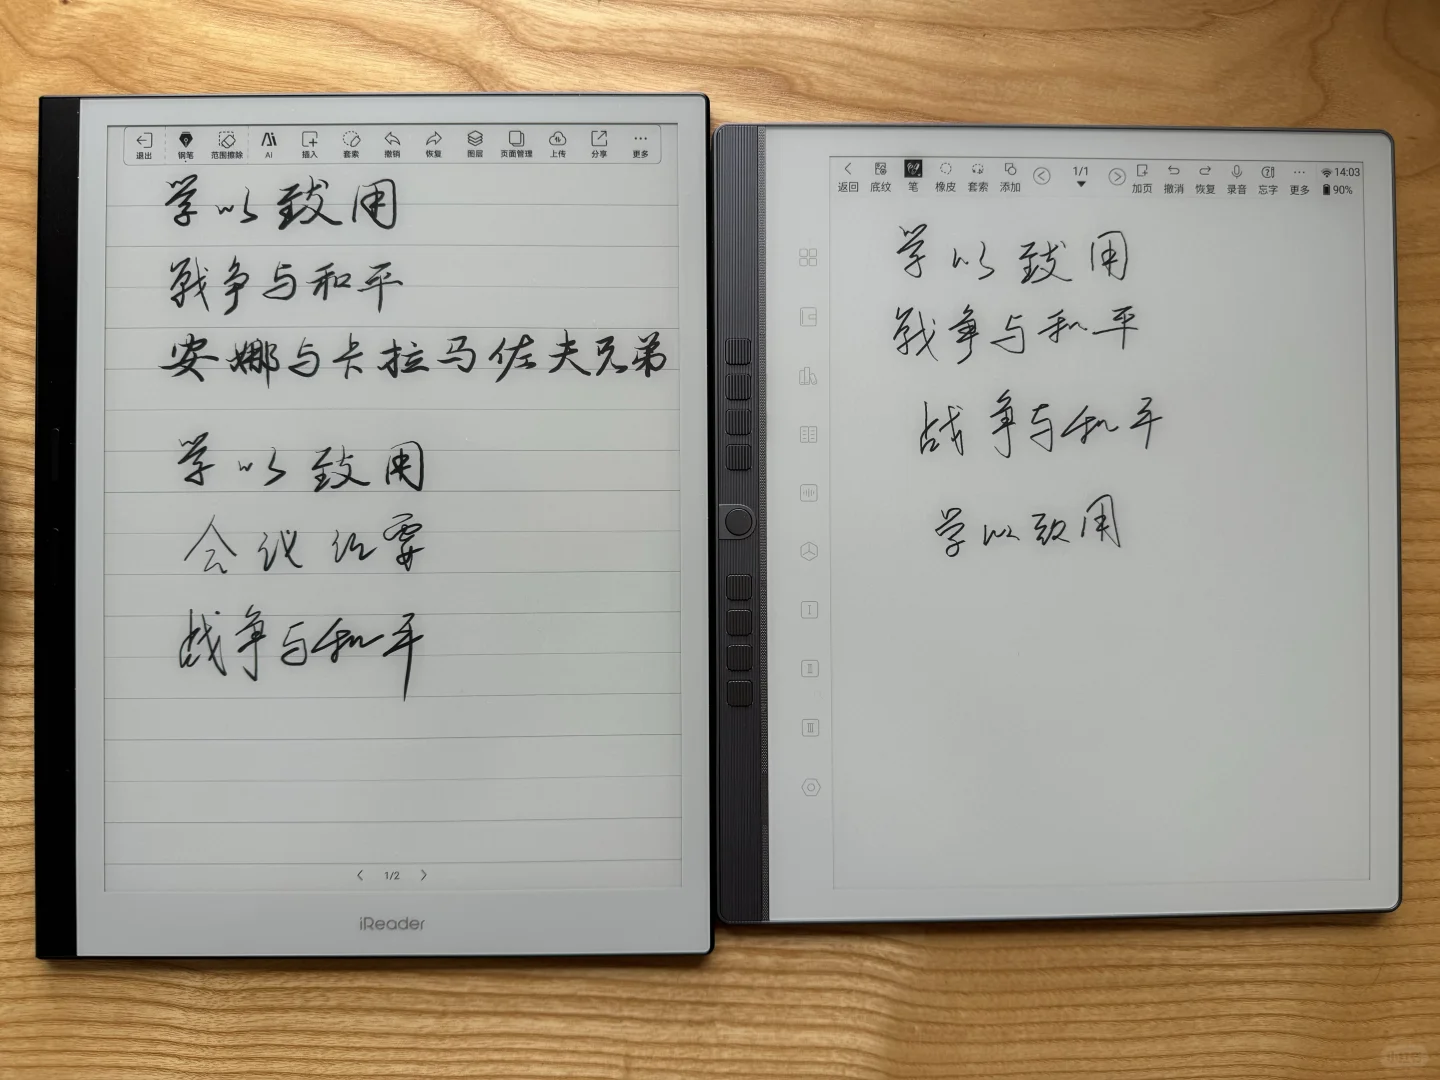 退出 钢笔 范围擦除 AI 插入 套索 撤销 恢复 图层 页面管理 上传 分享 更多
学以致用
战争与和平
安娜与卡拉马佐夫兄弟
学以致用
会议纪要
战争与和平
1/2
iReader
返回 底纹 笔 橡皮 套索 添加 1/1 加页 撤消 恢复 录音 忘字 更多 14:03 90%
学以致用
战争与和平
战争与和平
学以致用
小红书